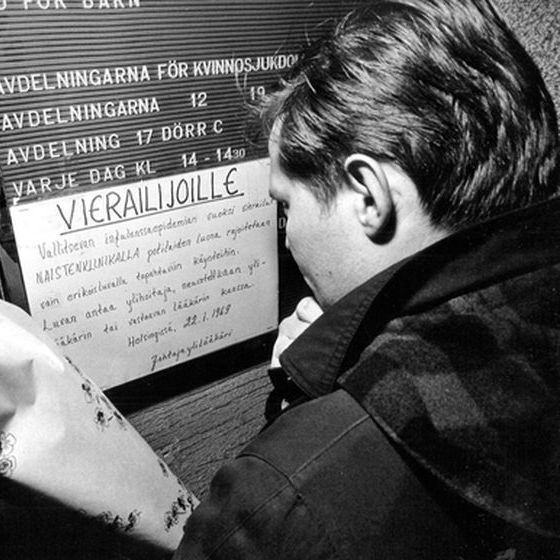 FÖR BARN
AVDELNINGARNA FÖR KVINNOSJUKDO
AVDELNINGARNA 12 19
AVDELNING 17 DÖRR C
VARJE DAG KL 14 - 14 30
VIERAILIJOILLE
Vallitsevan influenssaepidemian vuoksi vierailut
NAISTENKLINIKALLA potilaiden luona rajoitetaan
vain erikoisluvalla tapahtuviin käynteihin.
Luvan antaa ylihoitaja, neuvoteltuaan yli-
lääkärin tai vastaavan lääkärin kanssa.
Helsingissä, 22.1.1969
Johtajaylilääkäri